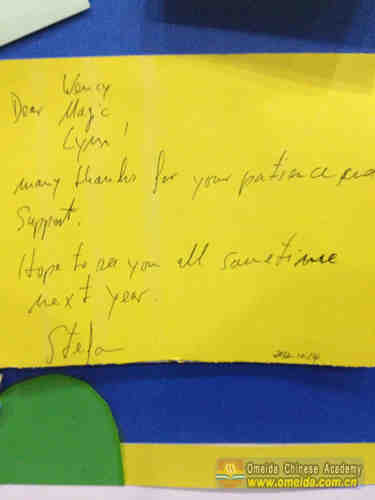 Wency
Dear Magic
Lynn!
many thanks for your patience and
Support.
Hope to see you all sometime
next year.
Stefa
Omeida Chinese Academy
www.omeida.com.cn